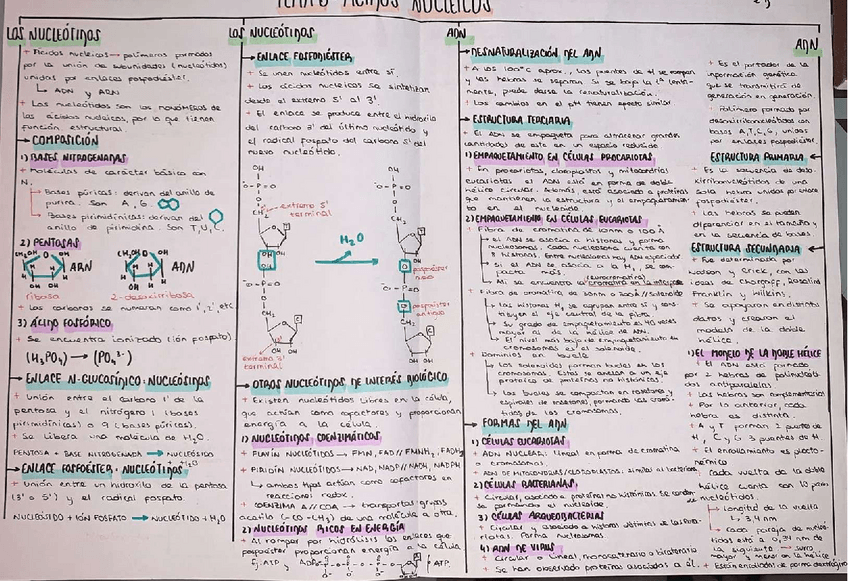 TEMA 6 ÁCIDOS NUCLEICOS
LOS NUCLEÓTIDOS
+ Ácidos nucleicos → polímeros formados
por la unión de subunidades (nucleótidos)
unidas por enlaces fosfodiéster.
↳ ADN y ARN
+ Los nucleótidos son los monómeros de
los ácidos nucleicos, por lo que tienen
función estructural.
COMPOSICIÓN
1) BASES NITROGENADAS
+ Moléculas de carácter básico con
N.
Bases púricas: derivan del anillo de
purina. Son A, G.
Bases pirimidínicas: derivan del
anillo de pirimidina. Son T, U, C.
2) PENTOSAS
ARN
ADN
ribosa
2-desoxirribosa
+ Los carbonos se numeran como 1', 2', etc.
3) ÁCIDO FOSFÓRICO
+ Se encuentra ionizado (ión fosfato)
(H₃PO₄) → (PO₄³⁻)
ENLACE N-GLUCOSÍDICO: NUCLEÓSIDOS
+ Unión entre el carbono 1' de la
pentosa y el nitrógeno 1 (bases
pirimidínicas) o 9 (bases púricas).
+ Se libera una molécula de H₂O.
PENTOSA + BASE NITROGENADA → NUCLEÓSIDO
+ H₂O
ENLACE FOSFOÉSTER: NUCLEÓTIDOS
+ Unión entre un hidroxilo de la pentosa
(3' o 5') y el radical fosfato
NUCLEÓSIDO + IÓN FOSFATO → NUCLEÓTIDO + H₂O
LOS NUCLEÓTIDOS
ENLACE FOSFODIÉSTER
+ Se unen nucleótidos entre sí.
+ Los ácidos nucleicos se sintetizan
desde el extremo 5' al 3'.
+ El enlace se produce entre el hidroxilo
del carbono 3' del último nucleótido y
el radical fosfato del carbono 5' del
nuevo nucleótido.
extremo 5'
terminal
H₂O
extremo 3'
terminal
OTROS NUCLEÓTIDOS DE INTERÉS BIOLÓGICO
+ Existen nucleótidos libres en la célula,
que actúan como cofactores y proporcionan
energía a la célula.
1) NUCLEÓTIDOS COENZIMÁTICOS
+ FLAVÍN NUCLEÓTIDOS → FMN, FAD // FMNH₂, FADH₂
+ PIRIDÍN NUCLEÓTIDOS → NAD, NADP // NADH, NADPH
↳ ambos tipos actúan como cofactores en
reacciones redox.
+ COENZIMA A // COA → transportar grupos
acetilo (-CO-CH₃) de una molécula a otra.
2) NUCLEÓTIDOS RICOS EN ENERGÍA
+ Al romper por hidrólisis los enlaces que
fosfoéster proporcionan energía a la célula
ATP
ADN
DESNATURALIZACIÓN DEL ADN
+ A los 100°C aprox., los puentes de H se rompen
y las hebras se separan. Si se baja la tª lenta-
mente, puede darse la renaturalización.
+ Los cambios en el pH tienen efecto similar
ESTRUCTURA TERCIARIA
+ El ADN se empaqueta para almacenar grandes
cantidades de este en un espacio reducido
1) EMPAQUETAMIENTO EN CÉLULAS PROCARIOTAS
+ En procariotas, cloroplastos y mitocondrias
eucariotas el ADN está en forma de doble
hélice circular. Además, está asociado a proteínas
que mantienen la estructura y el empaquetamien-
to en el nucleoide.
2) EMPAQUETAMIENTO EN CÉLULAS EUCARIOTAS
+ Fibra de cromatina de 10nm o 100 Å
el ADN se asocia a histonas y forma
nucleosomas. Cada nucleosoma cuenta con
8 histonas. Entre nucleosomas hay ADN espaciador
Si el ADN se asocia a la H₁, se com-
pacta más
Así se encuentra la cromatina en la interfase
+ Fibra de cromatina de 30nm o 300 Å/Solenoide
Las histonas H₁ se agrupan entre sí y cons-
tituyen el eje central de la fibra.
Su grado de empaquetamiento es 40 veces
mayor al de la hélice de ADN.
El nivel más bajo de empaquetamiento en
cromosomas es el solenoide.
+ Dominios en bucle
Los solenoides forman bucles en los
cromosomas. Estos se anclan a un eje
proteico de proteínas no histónicas.
Los bucles se compactan en rosetones, y
espirales de rosetones, formando las cromá-
tidas de los cromosomas.
FORMAS DEL ADN
1) CÉLULAS EUCARIOTAS
+ ADN NUCLEAR: Lineal en forma de cromatina
o cromosomas
+ ADN DE MITOCONDRIAS/CLOROPLASTOS: similar al bacteriano
2) CÉLULAS BACTERIANAS
+ Circular, asociado a proteínas no histónicas. Se conden-
sa formando el nucleoide
3) CÉLULAS ARQUEOBACTERIAS
+ Circular y asociado a histonas distintas de las euca-
riotas. Forma nucleosomas
4) ADN DE VIRUS
+ Circular o lineal, monocatenario o bicatenario
+ Se han observado proteínas asociadas a él.
ADN
+ Es el portador de la
información genética
que se transmitirá de
generación en generación
+ Polímero formado por
desoxirribonucleótidos con
bases A, T, C, G, unidas
por enlaces fosfodiéster.
ESTRUCTURA PRIMARIA
+ Es la secuencia de deso-
xirribonucleótidos de una
sola hebra unidos por enlace
fosfodiéster
+ Las hebras se pueden
diferenciar en el tamaño y
en la secuencia de bases
ESTRUCTURA SECUNDARIA
+ Fue determinada por
Watson y Crick, con las
ideas de Chargaff, Rosalind
Franklin y Wilkins.
+ Se apoyaron en distintos
datos y crearon el
modelo de la doble
hélice.
1) EL MODELO DE LA DOBLE HÉLICE
+ El ADN está formado
por 2 hebras de polinucleóti-
dos antiparalelas
+ Las hebras son complementarias
+ Por lo anterior, cada
hebra es distinta.
+ A y T forman 2 puentes de
H, C y G 3 puentes de H.
+ El enrollamiento es plecto-
némico
Cada vuelta de la doble
hélice cuenta con 10 pares
de nucleótidos.
Longitud de la vuelta
↳ 3,4 nm
Cada pareja de nucleó-
tidos está a 0,34 nm de
la siguiente